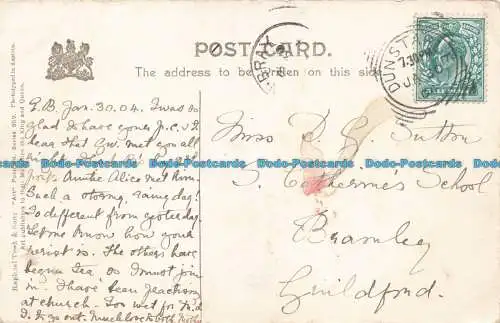 POST CARD.
The address to be written on this side.
Raphael Tuck & Sons' "Art" Postcard Series
Art publishers to Their Majesties the King and Queen.
BRAY
DUNSTABLE
7.30 PM
G.B. Jan. 30.04. I was so
glad to have yours p.c. & to
hear that Gw. met you all
right.
Auntie Alice met him.
Such a stormy, rainy day!
So different from yesterday.
Let me know how your
is. The others have
begun tea so I must join
in. I have been
at church. Too wet for
to go out. Much love to both
Miss Sutton
S. Catherine's School
Bramley
Guildford.
Dodo-Postcards Dodo-Postcards Dodo-Postcards Dodo-Postcards